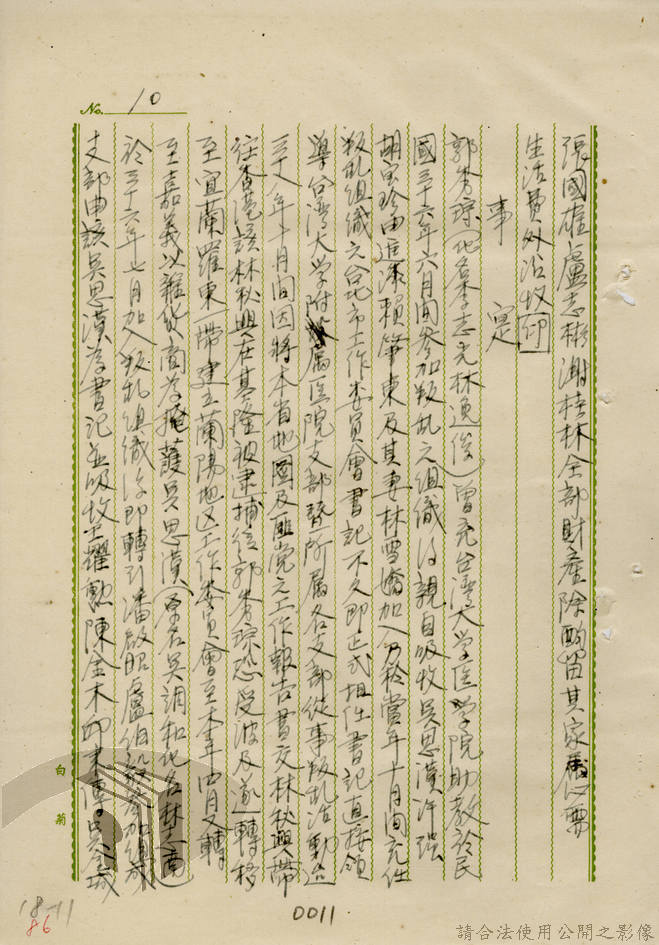 No. 10
張國雄盧志彬謝桂林全部財產除酌留其家屬必需
生活費外沒收 仰
事實
郭琇琮(化名李志光林逸俊)曾充台灣大学医学院助教於民
國三十六年六月間參加叛乱之組織後親自吸收吳思漢許強
胡寶珍由進漆賴肇東及其妻林雪嬌加入另於當年十月間充任
叛乱組織之台北市工作委員會書記不久即正式担任書記直接領
導台湾大学附属医院支部暨所属各支部從事叛乱活動迨
三十八年十月間因將本省地圖及匪党之工作報告書交林秋興帶
往香港該林秋興在基隆被逮捕後郭琇琮恐受波及遂轉移
至宜蘭羅東一帶建立蘭陽地区工作委員會至本年四月又轉
至嘉義以雜貨商為掩護吳思漢(原名吳調和化名林大南
於三十六年七月加入叛乱組織後即轉引潘啟昭盧伯毅參加組成
支部由該吳思漢為書記並吸收王耀勲陳金木邱來傳吳金城
白菊
18-11
86
0011
請合法使用公開之影像